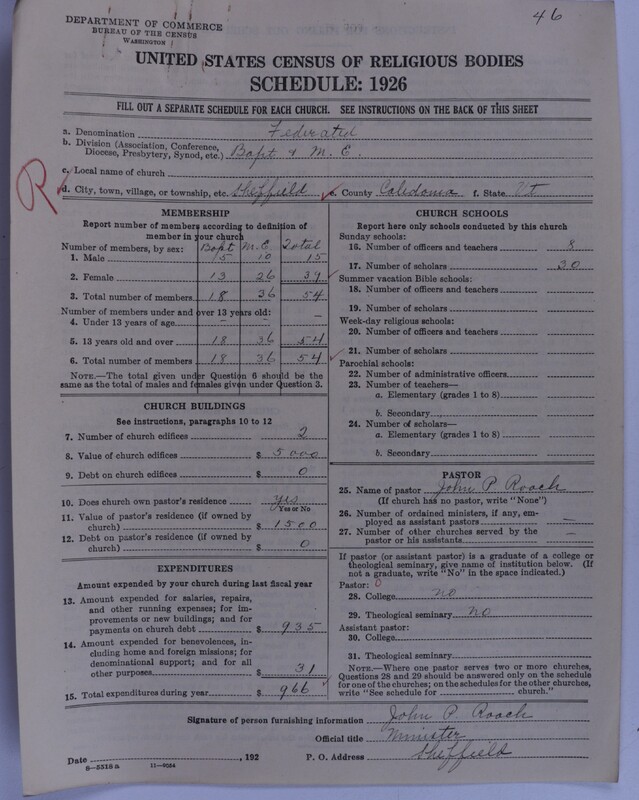 46
DEPARTMENT OF COMMERCE
BUREAU OF THE CENSUS
WASHINGTON
UNITED STATES CENSUS OF RELIGIOUS BODIES
SCHEDULE: 1926
FILL OUT A SEPARATE SCHEDULE FOR EACH CHURCH. SEE INSTRUCTIONS ON THE BACK OF THIS SHEET
a. Denomination Federated
b. Division (Association, Conference,
Diocese, Presbytery, Synod, etc.) Bapt & M.E.
c. Local name of church
R
d. City, town, village, or township, etc. Sheffield e. County Caledonia f. State Vt
MEMBERSHIP
Report number of members according to definition of
member in your church
Number of members, by sex: Bapt M.E Total
1. Male 5 10 15
2. Female 13 26 39
3. Total number of members 18 36 54
Number of members under and over 13 years old:
4. Under 13 years of age — — —
5. 13 years old and over 18 36 54
6. Total number of members 18 36 54
NOTE.—The total given under Question 6 should be the
same as the total of males and females given under Question 3.
CHURCH BUILDINGS
See instructions, paragraphs 10 to 12
7. Number of church edifices 2
8. Value of church edifices $ 5000
9. Debt on church edifices $ 0
10. Does church own pastor's residence yes
Yes or No
11. Value of pastor's residence (if owned by
church) $ 1500
12. Debt on pastor's residence (if owned by
church) $ 0
EXPENDITURES
Amount expended by your church during last fiscal year
13. Amount expended for salaries, repairs,
and other running expenses; for im-
provements or new buildings; and for
payments on church debt $ 935
14. Amount expended for benevolences, in-
cluding home and foreign missions; for
denominational support; and for all
other purposes $ 31
15. Total expenditures during year $ 966
CHURCH SCHOOLS
Report here only schools conducted by this church
Sunday schools:
16. Number of officers and teachers 8
17. Number of scholars 30
Summer vacation Bible schools:
18. Number of officers and teachers
19. Number of scholars
Week-day religious schools:
20. Number of officers and teachers
21. Number of scholars
Parochial schools:
22. Number of administrative officers
23. Number of teachers—
a. Elementary (grades 1 to 8)
b. Secondary
24. Number of scholars—
a. Elementary (grades 1 to 8)
b. Secondary
PASTOR
25. Name of pastor John P. Roach
(If church has no pastor, write "None")
26. Number of ordained ministers, if any, em-
ployed as assistant pastors —
27. Number of other churches served by the
pastor or his assistants —
If pastor (or assistant pastor) is a graduate of a college or
theological seminary, give name of institution below. (If
not a graduate, write "No" in the space indicated.)
Pastor: 0
28. College no
29. Theological seminary no
Assistant pastor:
30. College
31. Theological seminary
NOTE.—Where one pastor serves two or more churches,
Questions 28 and 29 should be answered only on the schedule
for one of the churches; on the schedules for the other churches,
write "See schedule for church."
Signature of person furnishing information John P. Roach
Official title Minister
Date , 192 P. O. Address Sheffield
8—5518a 11—9034